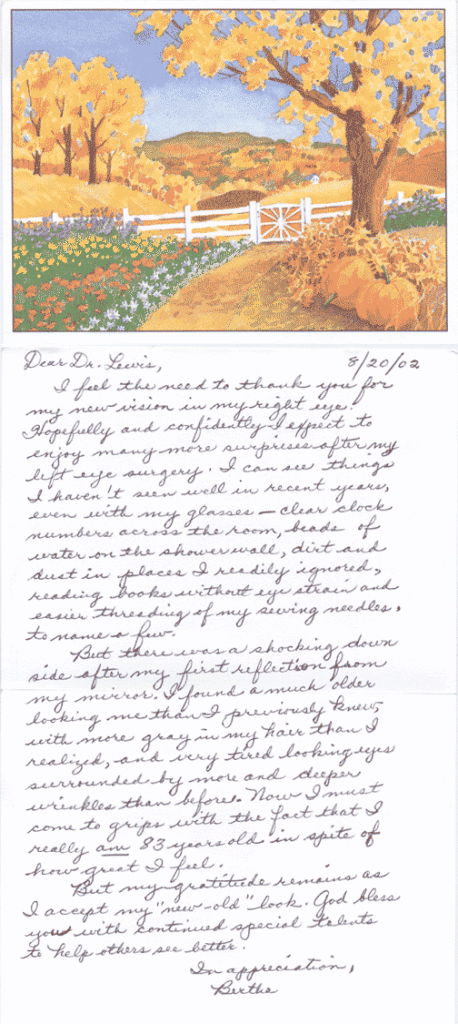 Dear Dr. Lewis, 8/20/02
I feel the need to thank you for
my new vision in my right eye.
Hopefully and confidently I expect to
enjoy many more surprises after my
left eye surgery. I can see things
I haven't seen well in recent years,
even with my glasses — clear clock
numbers across the room, beads of
water on the shower wall, dirt and
dust in places I readily ignored,
reading books without eye strain and
easier threading of my sewing needles,
to name a few.
But there was a shocking down
side after my first reflection from
my mirror. I found a much older
looking me than I previously knew,
with more gray in my hair than I
realized, and very tired looking eyes
surrounded by more and deeper
wrinkles than before. Now I must
come to grips with the fact that I
really am 83 years old in spite of
how great I feel.
But my gratitude remains as
I accept my "new-old" look. God bless
you with continued special talents
to help others see better.
In appreciation,
Berthe